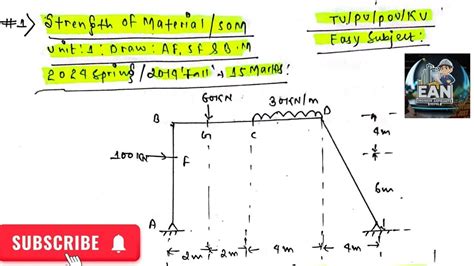 #1) Strength of Material/SOM
TU/PU/POU/KU
Unit:1: Draw: AF, SF & B.M
Easy Subject:
2024 Spring/2019 Fall → 15 Marks:
EAN
60KN
30KN/m
B
G
C
D
4m
100KN
F
6m
A
2m
2m
4m
4m
SUBSCRIBE